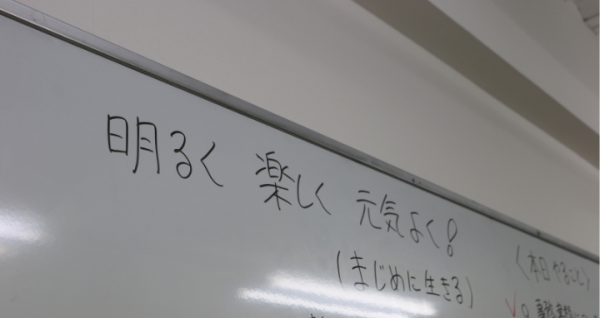 明るく 楽しく 元気よく!
(まじめに生きる)
〈本日やること〉